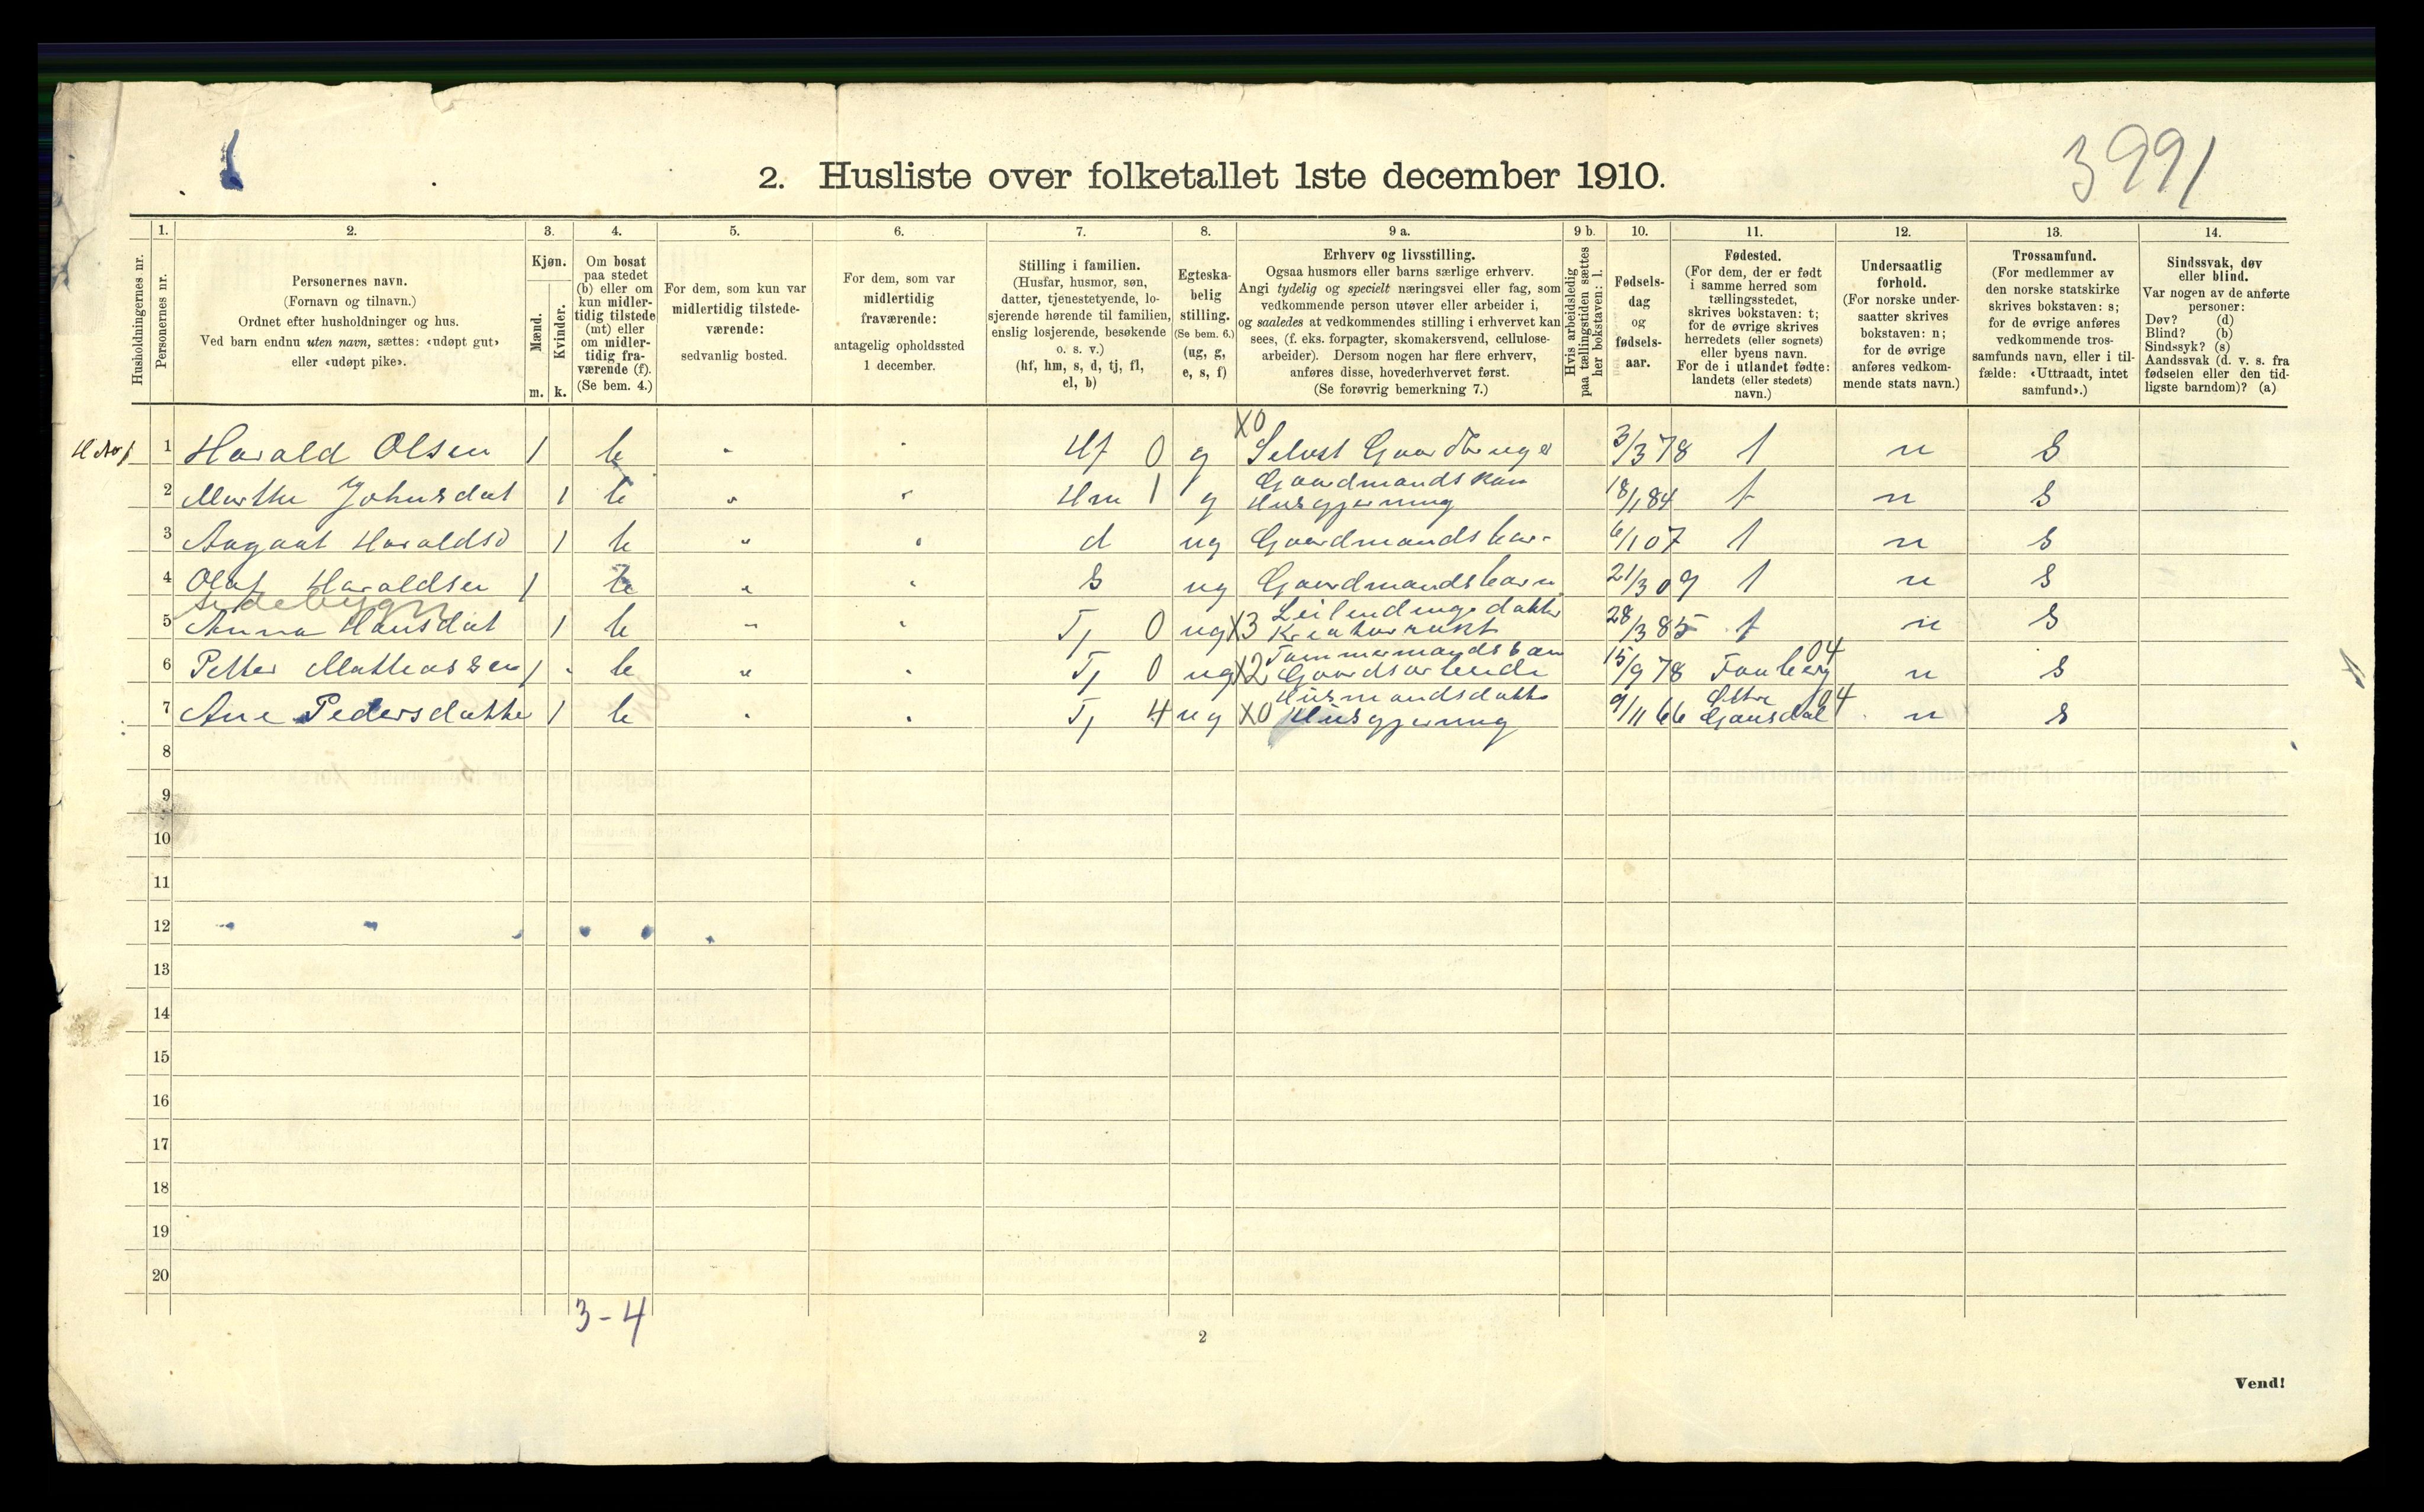 3991
2. Husliste over folketallet 1ste december 1910.
Husholdningernes nr.
1.
Personernes nr.
2.
Personernes navn.
(Fornavn og tilnavn.)
Ordnet efter husholdninger og hus.
Ved barn endnu uten navn, sættes: «udøpt gut»
eller «udøpt pike».
3.
Kjøn.
Mænd.
m.
Kvinder.
k.
4.
Om bosat
paa stedet
(b) eller om
kun midler-
tidig tilstede
(mt) eller
om midler-
tidig fra-
værende (f).
(Se bem. 4.)
5.
For dem, som kun var
midlertidig tilstede-
værende:
sedvanlig bosted.
6.
For dem, som var
midlertidig
fraværende:
antagelig opholdssted
1 december.
7.
Stilling i familien.
(Husfar, husmor, søn,
datter, tjenestetyende, lo-
sjerende hørende til familien,
enslig losjerende, besøkende
o. s. v.)
(hf, hm, s, d, tj, fl,
el, b)
8.
Egteska-
belig
stilling.
(Se bem. 6.)
(ug, g,
e, s, f)
9 a.
Erhverv og livsstilling.
Ogsaa husmors eller barns særlige erhverv.
Angi tydelig og specielt næringsvei eller fag, som
vedkommende person utøver eller arbeider i,
og saaledes at vedkommendes stilling i erhvervet kan
sees, (f. eks. forpagter, skomakersvend, cellulose-
arbeider). Dersom nogen har flere erhverv,
anføres disse, hovederhvervet først.
(Se forøvrig bemerkning 7.)
9 b.
Hvis arbeidsledig
paa tællingstiden sættes
her bokstaven: l.
10.
Fødsels-
dag
og
fødsels-
aar.
11.
Fødested.
(For dem, der er født
i samme herred som
tællingsstedet,
skrives bokstaven: t;
for de øvrige skrives
herredets (eller sognets)
eller byens navn.
For de i utlandet fødte:
landets (eller stedets)
navn.)
12.
Undersaatlig
forhold.
(For norske under-
saatter skrives
bokstaven: n;
for de øvrige
anføres vedkom-
mende stats navn.)
13.
Trossamfund.
(For medlemmer av
den norske statskirke
skrives bokstaven: s;
for de øvrige anføres
vedkommende tros-
samfunds navn, eller i til-
fælde: «Uttraadt, intet
samfund».)
14.
Sindssvak, døv
eller blind.
Var nogen av de anførte
personer:
Døv? (d)
Blind? (b)
Sindssyk? (s)
Aandssvak (d. v. s. fra
fødselen eller den tid-
ligste barndom)? (a)
X0
1 Harald Olsen 1 b Hf 0 g Selvst Gaardbruger 3/3 78 t n S
Gaardmandskone
2 Marthe Johnsdat 1 b Hm 1 g Husgjerning 18/1 84 t n S
3 Aagaat Haraldsd 1 b d ug Gaardmandsbar- 6/1 07 t n S
4 Olaf Haraldsen 1 b S ug Gaardmandsbarn 21/3 09 t n S
sidebygn
Leilendings datter
5 Anna Hansdat 1 b Tj 0 ug X3 Kreaturrøkt 28/3 85 t n S
Tømmermandsbarn 04
6 Petter Mathiassen 1 b Tj 0 ug X2 Gaardsarbeide 15/9 78 Faaberg n S
Husmandsdatter Østre 04
7 Ane Pedersdatter 1 b Tj 4 ug X0 Husgjerning 9/11 66 Gausdal n S
8
9
10
11
12
13
14
15
16
17
18
19
20
3-4
2
Vend!